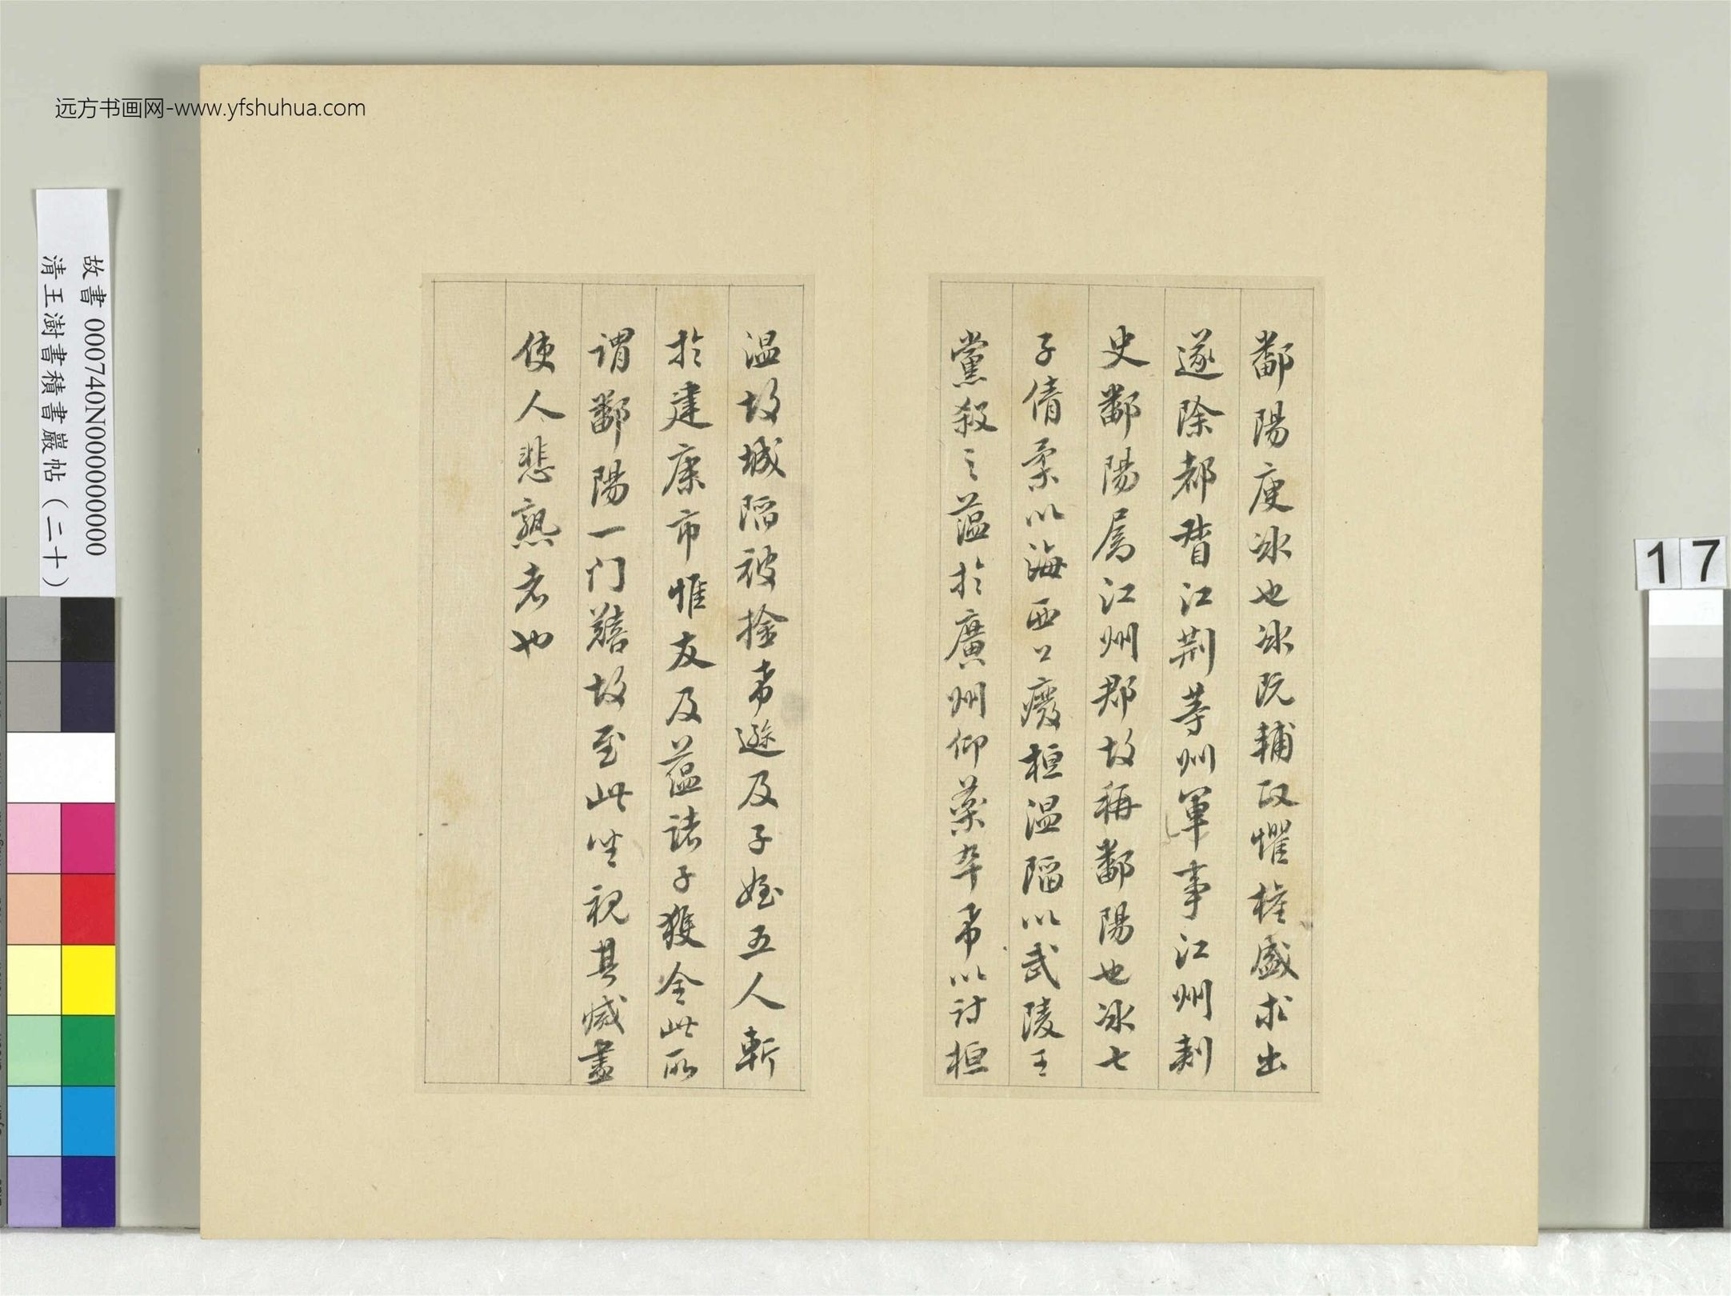 远方书画网-www.yfshuhua.com
故書 000740N000000000
清王澍書積書巖帖（二十）
17
鄱陽庾冰也冰既輔政懼權盛求出
遂除都督江荆等州軍事江州刺
史鄱陽屬江州郡故稱鄱陽也冰七
子倩柔以海西公廢桓温陷以武陵王
黨殺之藴於廣州仰藥卒希以討桓
温故城陷被擒希邈及子姪五人斬
於建康市惟友及藴諸子獲全此所
謂鄱陽一门囏故至此坐視其滅盡
使人悲熟者也